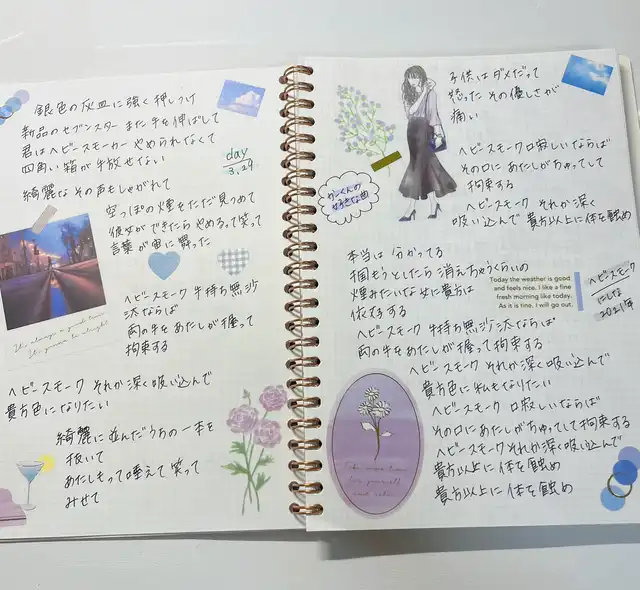 銀色の灰皿に強く押しつけ
新品のセブンスター また手を伸ばして
君はヘビースモーカー やめられなくて
四角い箱が手放せない
day
3.29
綺麗なその声もしゃがれて
空っぽの煙をただ見つめて
彼女ができたら やめるって笑って
言葉が宙に舞った
ヘビースモーク 手持ち無沙
汰ならば
両の手をあたしが握って
拘束する
ヘビースモーク それか深く吸い込んで
貴方色になりたい
綺麗に並んだうちの一本を
抜いて
あたしもって咥えて笑って
みせて
子供はダメだって
怒った その優しさが
痛い
ヘビースモーク 口寂しいならば
その口に あたしがちゅってして
拘束する
ヘビースモーク それか深く
吸い込んで 貴方以上に体を蝕め
好きな曲
本当は 分かってる
掴もうとしたら 消えちゃうくらいの
煙みたいな女に貴方は
依存する
ヘビースモーク 手持ち無沙汰ならば
両の手をあたしが握って拘束する
Today the weather is good
and feels nice. I like a fine
fresh morning like today.
As it is fine, I will go out.
ヘビースモーク
にしな
2021年
ヘビースモーク それか深く吸い込んで
貴方色に私もなりたい
ヘビースモーク 口寂しいならば
その口に あたしがちゅってして拘束する
ヘビースモーク それか深く吸い込んで
貴方以上に体を蝕め
貴方以上に 体を蝕め